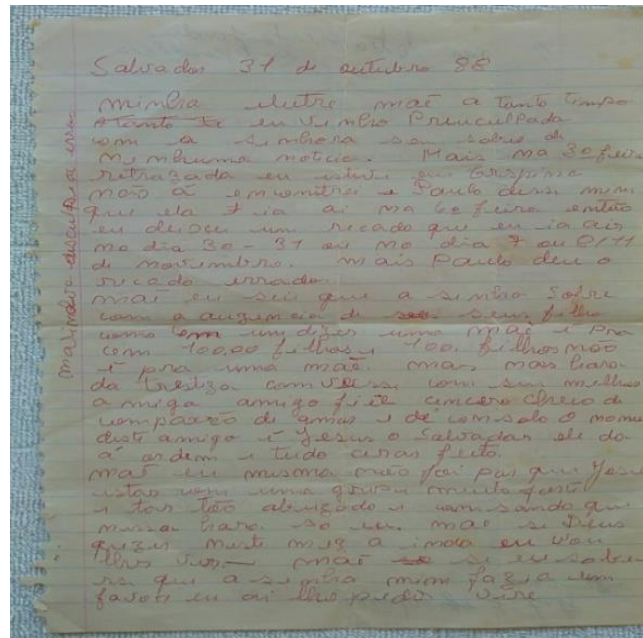 Salvador 31 de outubro 88
minha ilutre maẽ a tanto tempo
eu vinho Preuculpada
com a sinhora sem sabre di
ninhuma noticia. Mais na 3º feira
retrazada eu istive em
não á encontrei e Paulo disse mim
que ela ia ai na 6º feira então
eu deixeu um recado que eu ia ais
no dia 30 - 31 ou no dia 7 ou 8/11
di novembro. mais Paulo deu o
recado errado.
maẽ eu seii que a sinhora sofre
com a auzencia di seus filho
como um dizer uma maẽ é pra
cem 100,00 filhos e 100, filhos não
é pra uma maẽ. mais nas hora
da tristiza converse com seu milhor
amigo amigo fiel cincero cheio de
compaxão di amor e dé consolo o nome
disti amigo é Jesus o Salvador ele da
á ordem e tudo ceras feito.
maẽ eu mesma não foi pur que
istar com uma gripe muito forti
e tar tão abuzado e cansando que
nessa hora so eu. maẽ si Deus
quizer nesti mez a inda eu vou
lhes ver. maẽ si eu
que a sinhora mim fazia um
favor eu ai lhe pedir vire